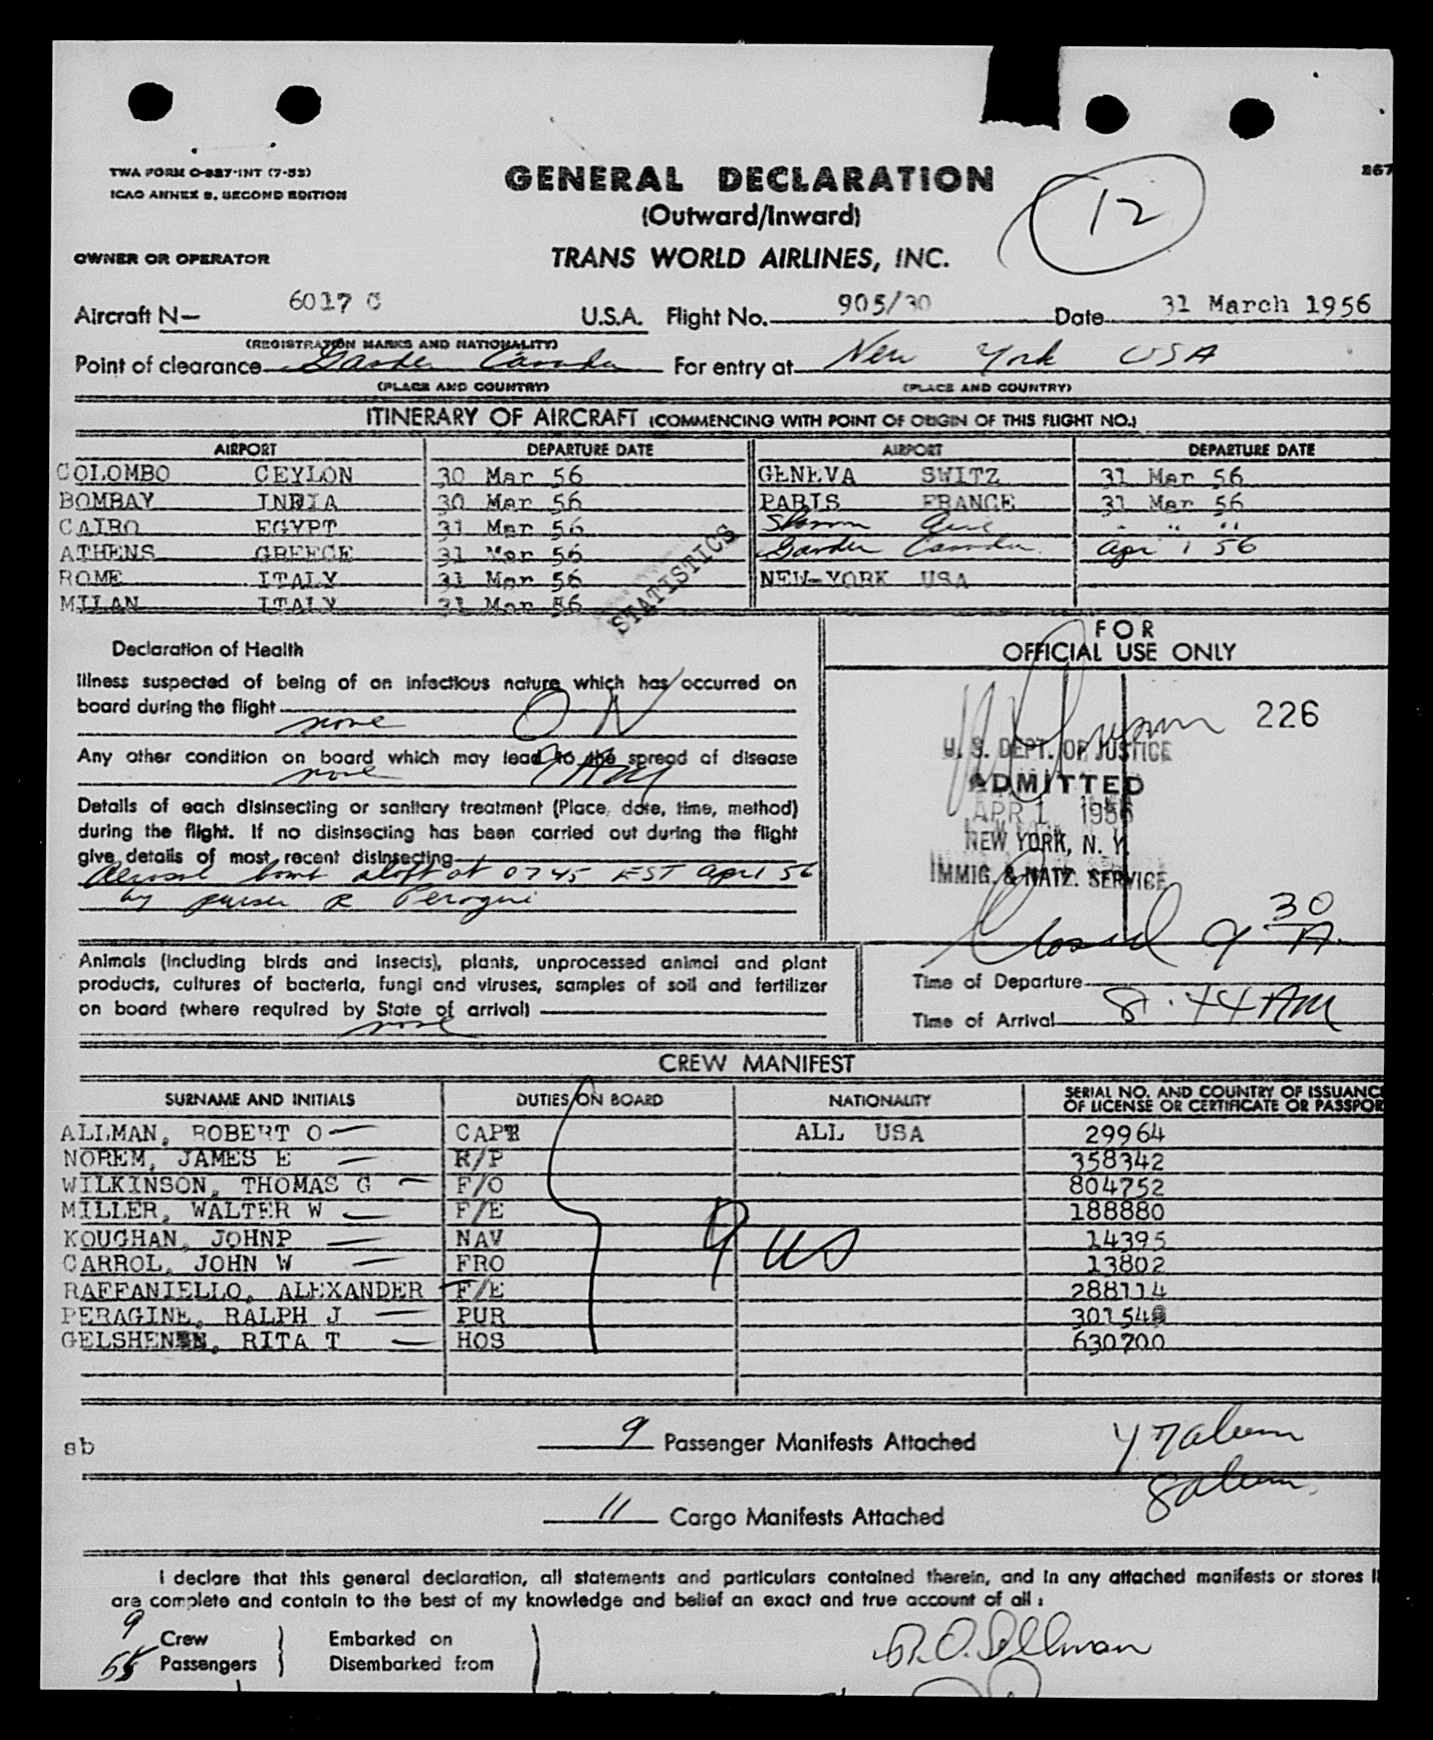 TWA FORM O-827-INT (7-53)
ICAO ANNEX 9, SECOND EDITION
GENERAL DECLARATION
(Outward/Inward)
TRANS WORLD AIRLINES, INC.
12
267
OWNER OR OPERATOR
Aircraft N— 6017 C U.S.A. Flight No. 905/30 Date 31 March 1956
(REGISTRATION MARKS AND NATIONALITY)
Point of clearance Gander Canada For entry at New York USA
(PLACE AND COUNTRY) (PLACE AND COUNTRY)
ITINERARY OF AIRCRAFT (COMMENCING WITH POINT OF ORIGIN OF THIS FLIGHT NO.)
AIRPORT DEPARTURE DATE AIRPORT DEPARTURE DATE
COLOMBO CEYLON 30 Mar 56 GENEVA SWITZ 31 Mar 56
BOMBAY INDIA 30 Mar 56 PARIS FRANCE 31 Mar 56
CAIRO EGYPT 31 Mar 56 " " "
ATHENS GREECE 31 Mar 56 Gander Canada Apr 1 56
ROME ITALY 31 Mar 56 NEW-YORK USA
MILAN ITALY 31 Mar 56
STATISTICS
Declaration of Health
Illness suspected of being of an infectious nature which has occurred on
board during the flight none
Any other condition on board which may lead to the spread of disease
none
Details of each disinsecting or sanitary treatment (Place, date, time, method)
during the flight. If no disinsecting has been carried out during the flight
give details of most recent disinsecting
Aerosol bomb aloft at 0745 EST April 56
by purser R Peragine
FOR
OFFICIAL USE ONLY
226
U. S. DEPT. OF JUSTICE
ADMITTED
APR 1 1956
NEW YORK, N. Y.
IMMIG. & NATZ. SERVICE
Closed 9 30 A.
Animals (including birds and insects), plants, unprocessed animal and plant
products, cultures of bacteria, fungi and viruses, samples of soil and fertilizer
on board (where required by State of arrival)
none
Time of Departure
Time of Arrival 8:44 AM
CREW MANIFEST
SURNAME AND INITIALS DUTIES ON BOARD NATIONALITY SERIAL NO. AND COUNTRY OF ISSUANC
OF LICENSE OR CERTIFICATE OR PASSPOR
ALLMAN, ROBERT O CAPT ALL USA 29964
NOREM, JAMES E R/P 358342
WILKINSON, THOMAS G F/O 804752
MILLER, WALTER W F/E 188880
KOUGHAN, JOHNP NAV 14395
CARROL, JOHN W FRO 13802
RAFFANIELLO, ALEXANDER F/E 288114
PERAGINE, RALPH J PUR
GELSHENEN, RITA T HOS 630700
9 US
sb
9 Passenger Manifests Attached
11 Cargo Manifests Attached
I declare that this general declaration, all statements and particulars contained therein, and in any attached manifests or stores li
are complete and contain to the best of my knowledge and belief an exact and true account of all :
9 Crew } Embarked on
Passengers } Disembarked from
R.O. Allman